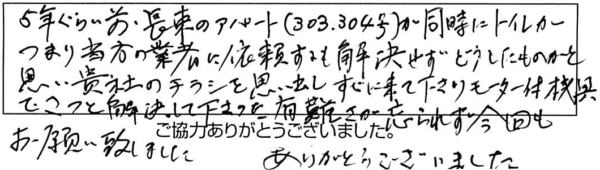 5年ぐらい前、長束のアパート(303.304号)が同時にトイレが
つまり当方の業者に依頼するも解決せずどうしたものかと
思い貴社のチラシを思い出しすぐに来て下さりモーター付機具
でさっと解決して下さった有難さが忘られず今回も
ご協力ありがとうございました。
お願い致しました ありがとうございました